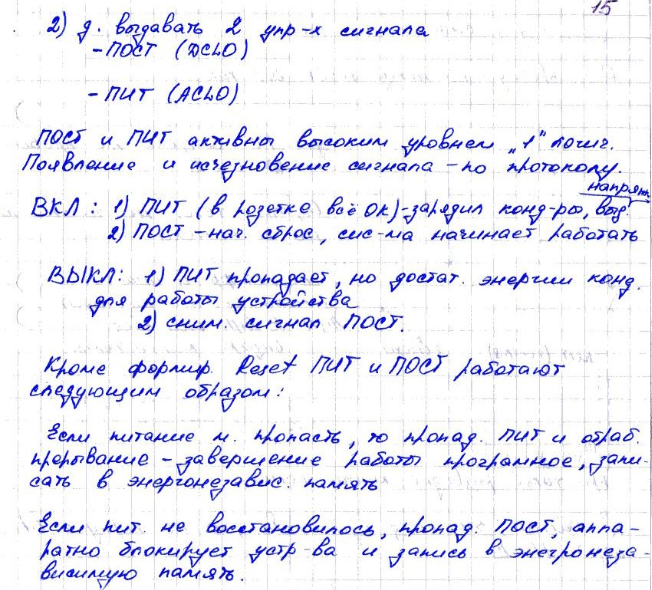 15
2) д. выдавать 2 упр-х сигнала
- ПОСТ (DCLO)
- ПИТ (ACLO)
ПОСТ и ПИТ активны высоким уровнем „1" логич.
Появление и исчезновение сигнала - по протоколу.
напряж.
ВКЛ : 1) ПИТ (в розетке всё ОК) - зарядил конд-ры, выд.
2) ПОСТ - нач. сброс, сис-ма начинает работать
ВЫКЛ: 1) ПИТ пропадает, но достат. энергии конд.
для работы устройства
2) сним. сигнал ПОСТ.
Кроме формир. Reset ПИТ и ПОСТ работают
следующим образом:
Если питание м. пропасть, то пропад. ПИТ и обраб.
прерывание - завершение работы програмное, запи-
сать в энергонезавис. память
Если пит. не восстановилось, пропад. ПОСТ, аппа-
ратно блокирует устр-ва и запись в энегронеза-
висимую память.